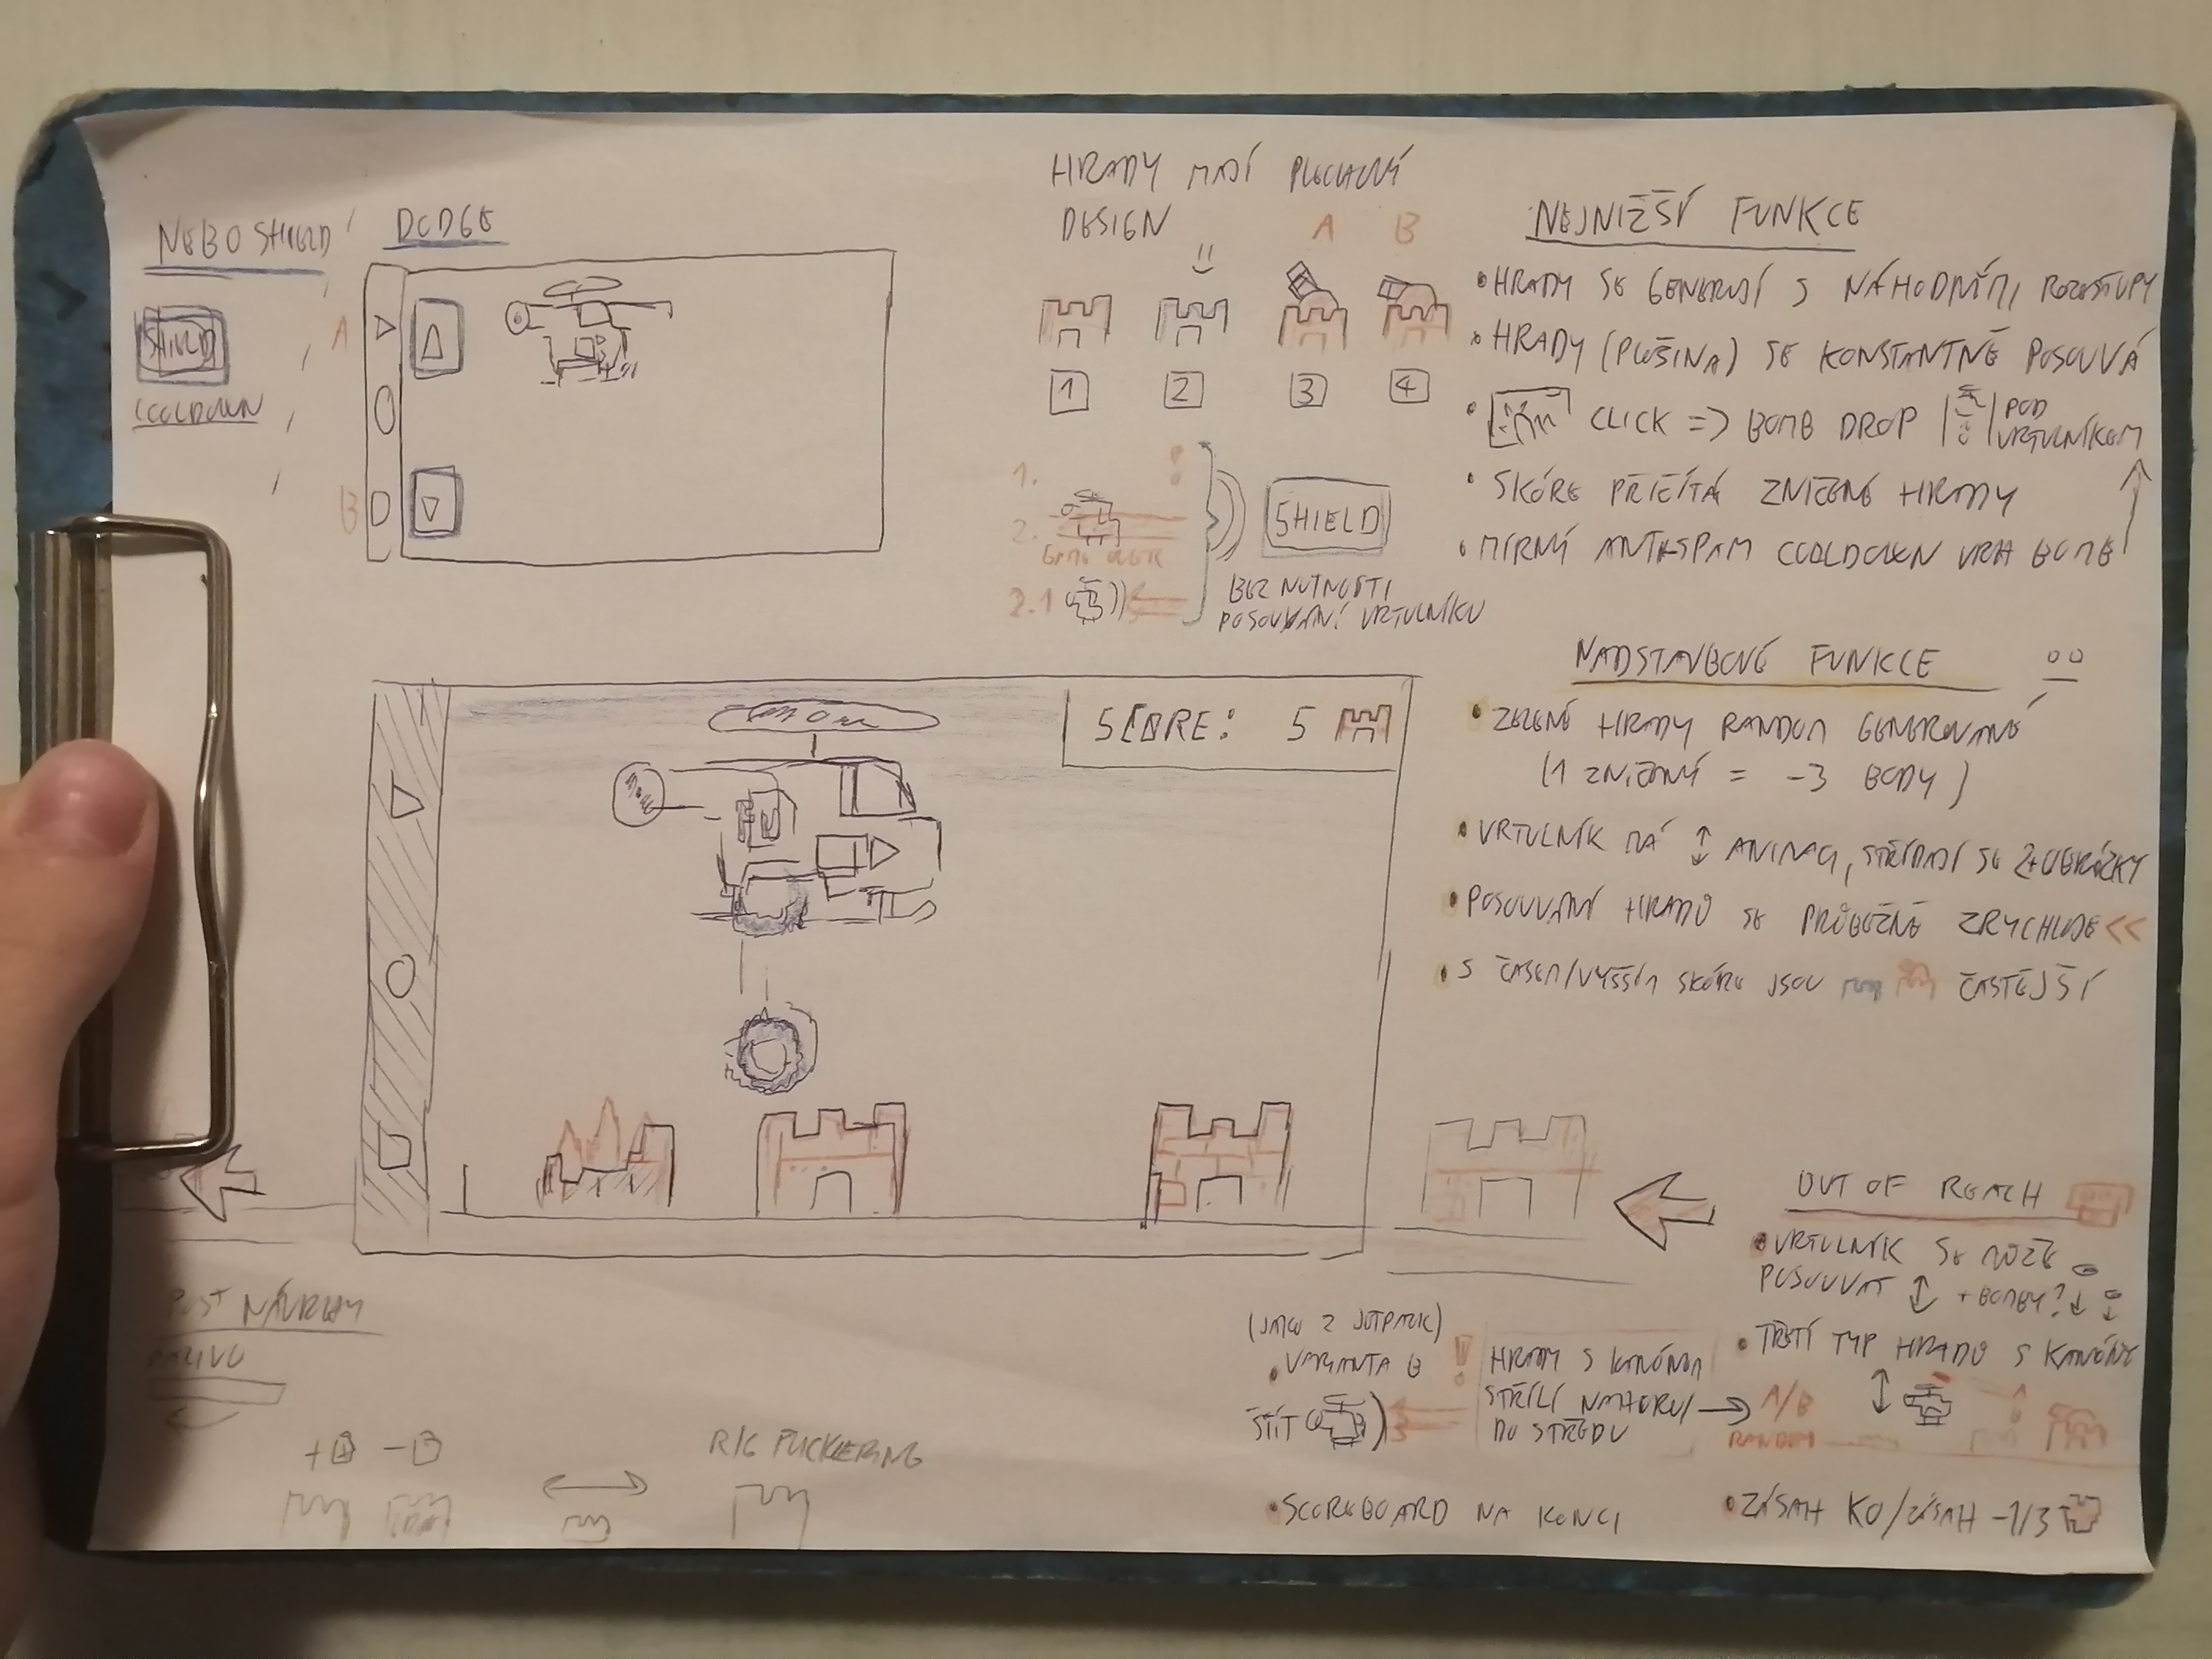 NEBO SHIELD
SHIELD
COOLDOWN
DODGE
A
B
HRADY MAJÍ PLOCHAVÝ
DESIGN
A B
1 2 3 4
1. !
2.
GAME OVER
2.1
SHIELD
BEZ NUTNOSTI
POSOUVÁNÍ VRTULNÍKU
NEJNIŽŠÍ FUNKCE
• HRADY SE GENERUJÍ S NÁHODNÝMI ROZESTUPY
• HRADY (PLOŠINA) SE KONSTANTNĚ POSOUVÁ
• CLICK => BOMB DROP POD
VRTULNÍKEM
• SKÓRE PŘIČÍTÁ ZNIČENÉ HRADY
• MÍRNÝ ANTI-SPAM COOLDOWN VRH BOMB
NADSTAVBOVÉ FUNKCE
• ZELENÉ HRADY RANDOM GENEROVANÉ
(1 ZNIČENÝ = -3 BODY)
• VRTULNÍK MÁ ↕ ANIMACI, STŘÍDAJÍ SE 2+ OBRÁZKY
• POSOUVÁNÍ HRADŮ SE PRŮBĚŽNĚ ZRYCHLUJE <<
• S ČASEM/VYŠŠÍM SKÓRE JSOU ČASTĚJŠÍ
SCORE: 5
OUT OF REACH
• VRTULNÍK SE MŮŽE
POSOUVAT ↕ + BOMBY? ↓
• TŘETÍ TYP HRADU S KANÓNY
(JAKO Z JETPACK)
• VARIANTA B
ŠTÍT
!
HRADY S KANÓNEM
STŘÍLÍ NAHORU/
DO STŘEDU
→ A/B
RANDOM
• SCOREBOARD NA KONCI
• ZÁSAH KO/ZÁSAH -1/3
POST NÁVRHY
PALIVO
+ -